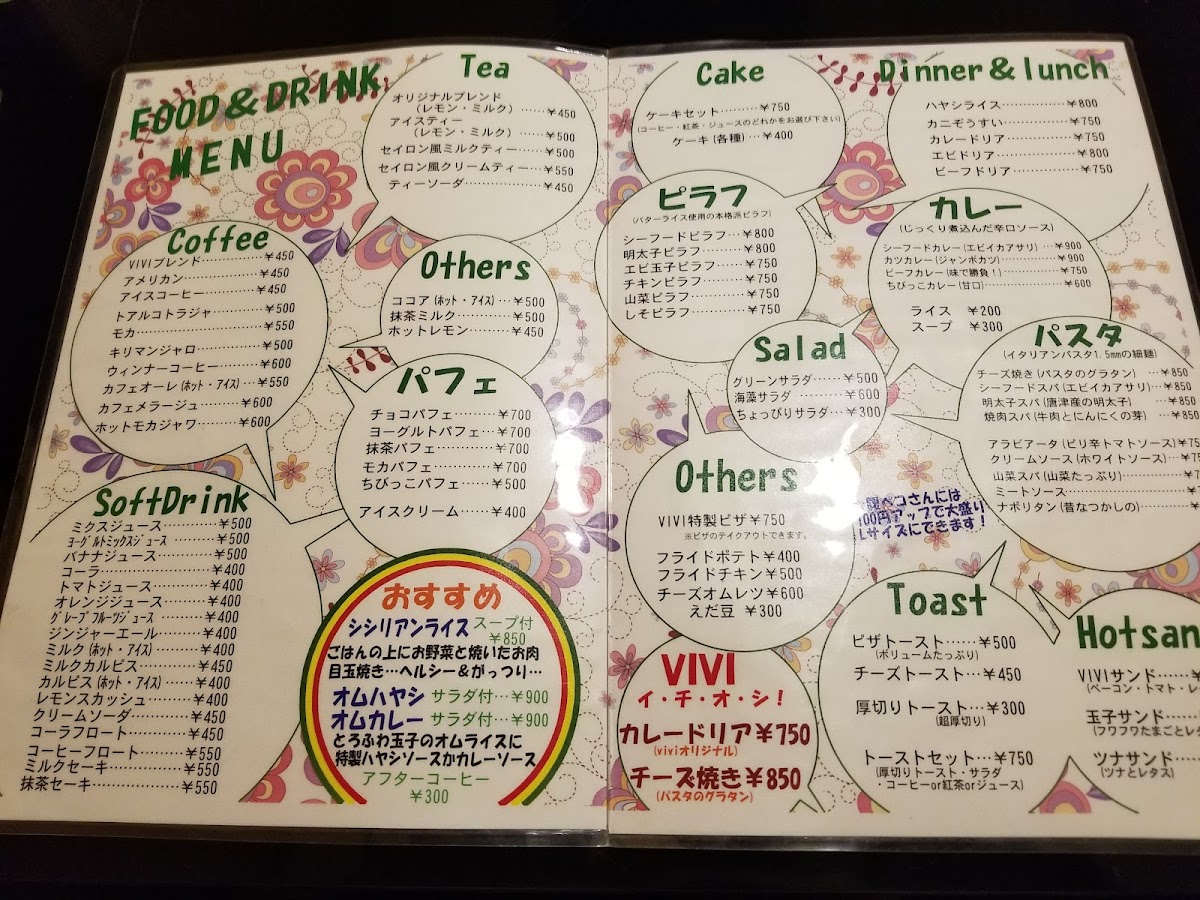 FOOD&DRINK
MENU
Tea
オリジナルブレンド
(レモン・ミルク)……¥450
アイスティー
(レモン・ミルク)……¥500
セイロン風ミルクティー……¥500
セイロン風クリームティー……¥550
ティーソーダ……………¥450
Coffee
VIVIブレンド……………¥450
アメリカン……………¥450
アイスコーヒー…………¥450
トアルコトラジャ…………¥500
モカ……………………¥550
キリマンジャロ…………¥500
ウィンナーコーヒー………¥600
カフェオーレ(ホット・アイス)…¥550
カフェメラージュ………¥600
ホットモカジャワ…………¥600
Others
ココア(ホット・アイス)…¥500
抹茶ミルク……………¥500
ホットレモン…………¥450
パフェ
チョコパフェ…………¥700
ヨーグルトパフェ……¥700
抹茶パフェ……………¥700
モカパフェ……………¥700
ちびっこパフェ………¥500
アイスクリーム………¥400
SoftDrink
ミクスジュース…………¥500
ヨーグルトミックスジュース………¥500
バナナジュース…………¥500
コーラ……………………¥400
トマトジュース…………¥400
オレンジジュース………¥400
グレープフルーツジュース………¥400
ジンジャーエール………¥400
ミルク(ホット・アイス)……¥400
ミルクカルピス…………¥450
カルピス(ホット・アイス)……¥400
レモンスカッシュ………¥400
クリームソーダ…………¥450
コーラフロート…………¥450
コーヒーフロート………¥550
ミルクセーキ……………¥550
抹茶セーキ………………¥550
おすすめ
シシリアンライス スープ付
¥850
ごはんの上にお野菜と焼いたお肉
目玉焼き…ヘルシー&がっつり…
オムハヤシ サラダ付…¥900
オムカレー サラダ付…¥900
とろふわ玉子のオムライスに
特製ハヤシソースかカレーソース
アフターコーヒー
¥300
Cake
ケーキセット………¥750
(コーヒー・紅茶・ジュースのどれかをお選び下さい)
ケーキ(各種)…¥400
Dinner&lunch
ハヤシライス……………¥800
カニぞうすい……………¥750
カレードリア……………¥750
エビドリア………………¥800
ビーフドリア……………¥750
ピラフ
(バターライス使用の本格派ピラフ)
シーフードピラフ…¥800
明太子ピラフ………¥800
エビ玉子ピラフ……¥750
チキンピラフ………¥750
山菜ピラフ…………¥750
しそピラフ…………¥750
カレー
(じっくり煮込んだ辛口ソース)
シーフードカレー(エビイカアサリ)…¥900
カツカレー(ジャンボカツ)………¥900
ビーフカレー(味で勝負!)………¥750
ちびっこカレー(甘口)……………¥600
ライス ¥200
スープ ¥300
Salad
グリーンサラダ……¥500
海藻サラダ…………¥600
ちょっぴりサラダ…¥300
パスタ
(イタリアンパスタ1.5mmの細麺)
チーズ焼き(パスタのグラタン) …¥850
シーフードスパ(エビイカアサリ)…¥850
明太子スパ(唐津産の明太子) …¥850
焼肉スパ(牛肉とにんにくの芽) …¥850
アラビアータ(ピリ辛トマトソース)¥75
クリームソース(ホワイトソース)…¥75
山菜スパ(山菜たっぷり)…………¥7
ミートソース………………………¥
ナポリタン(昔なつかしの)………¥
Others
VIVI特製ピザ¥750
※ピザのテイクアウトできます。
フライドポテト¥400
フライドチキン¥500
チーズオムレツ¥600
えだ豆 ¥300
腹ペコさんには
00円アップで大盛り
Lサイズにできます!
VIVI
イ・チ・オ・シ!
カレードリア¥750
(viviオリジナル)
チーズ焼き¥850
(パスタのグラタン)
Toast
ピザトースト……¥500
(ボリュームたっぷり)
チーズトースト……¥450
厚切りトースト…¥300
(超厚切り)
トーストセット…¥750
(厚切りトースト、サラダ
・コーヒーor紅茶orジュース)
Hotsan
VIVIサンド……¥
(ベーコン・トマト・レ
玉子サンド……
(フワフワたまごとレタ
ツナサンド……
(ツナとレタス)